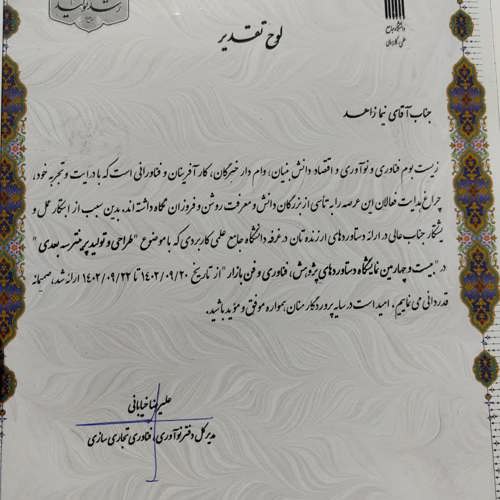 رشد تولید
دانشگاه جامع
علمی کاربردی
لوح تقدیر
جناب آقای نیما زاهد
زیست بوم فناوری و نوآوری و اقتصاد دانش بنیان، وام دار خبرگان، کارآفرینان و فناورانی است که با درایت و تجربه خود،
چراغ هدایت فعالان این عرصه را به تاسی از بزرگان دانش و معرفت روشن و فروزان نگاه داشته اند. بدین سبب از ابتکار عمل و
پشتکار جناب عالی در ارائه دستاوردهای ارزنده تان در غرفه دانشگاه جامع علمی کاربردی که با موضوع "طراحی و تولید پرینتر سه بعدی"
در "بیست و چهارمین نمایشگاه دستاوردهای پژوهش، فناوری و فن بازار" از تاریخ ۱۴۰۲/۰۹/۲۰ تا ۱۴۰۲/۰۹/۲۳ ارائه شد، صمیمانه
قدردانی می نماییم. امید است در سایه پروردگار منان همواره موفق و مؤید باشید.
علیرضا خیابانی
مدیر کل دفتر نوآوری، فناوری تجاری سازی